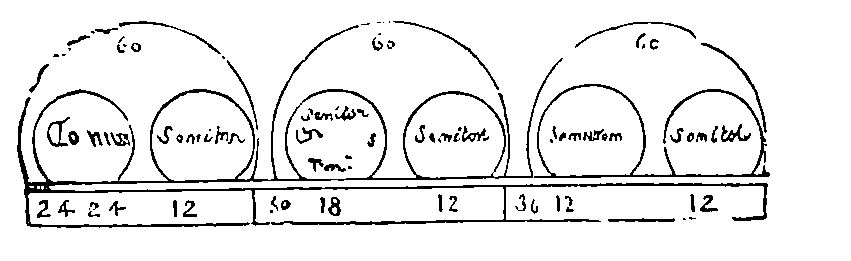 60 60 60
Tonus Semiton Semiton Semiton Semitom Semiton
24 24 12 30 18 12 36 12 12